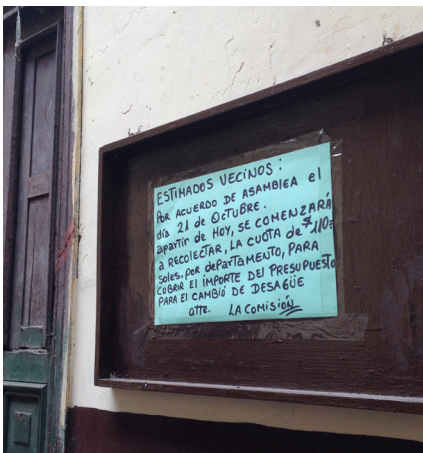 ESTIMADOS VECINOS:
POR ACUERDO DE ASAMBLEA el
día 21 de OCTUBRE.
apartir de Hoy, SE COMENZARÁ
a RECOLECTAR, LA CUOTA de $110=
soles. por depARTAMENTO, PARA
CUBRIR El IMPORTE DEl PRESUPUESTO
PARA El CAMBIÓ DE DESAGÜE
atte. LA COMISIÓN